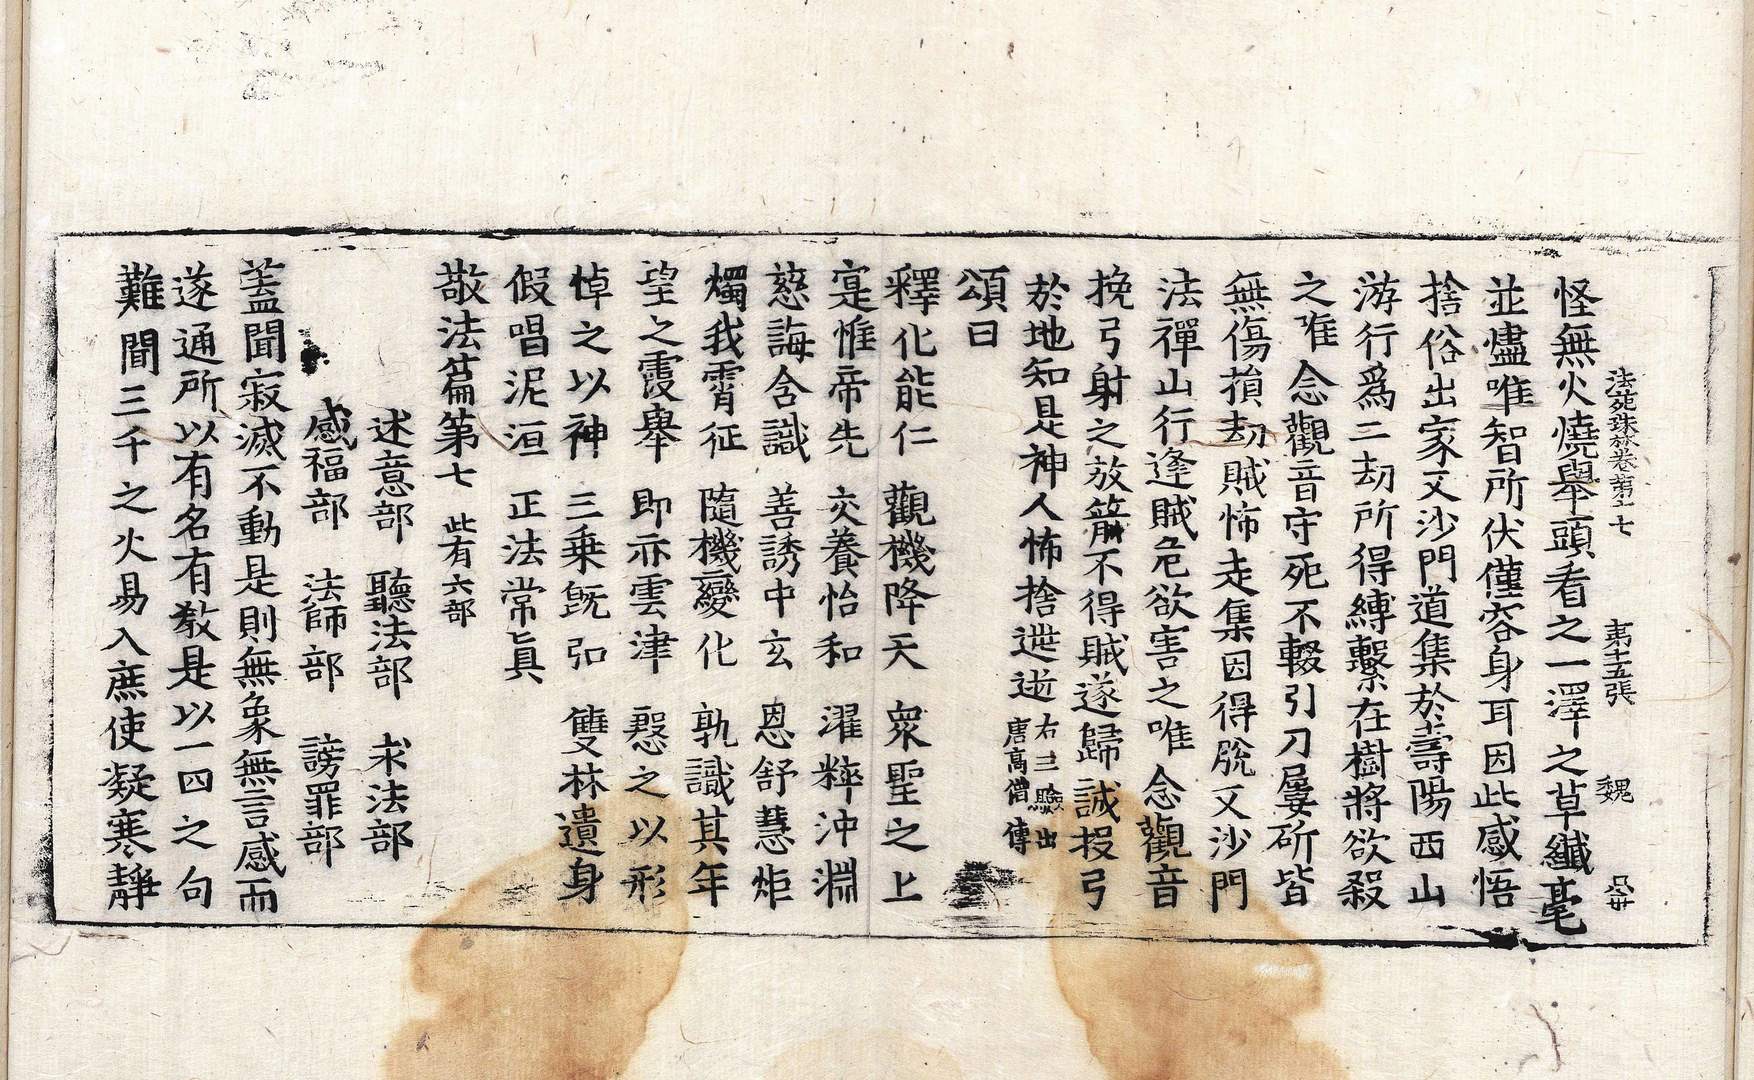 法苑珠林卷第十七 第十五張 魏
怪無火燒舉頭看之一澤之草纖毫
並燼唯智所伏僅容身耳因此感悟
捨俗出家又沙門道集於壽陽西山
游行爲二劫所得縛繫在樹將欲殺
之唯念觀音守死不輟引刀屢斫皆
無傷損劫賊怖走集因得脫又沙門
法禪山行逢賊危欲害之唯念觀音
挽弓射之放箭不得賊遂歸誠投弓
於地知是神人怖捨逃逝右三驗出
唐高僧傳
頌曰
釋化能仁 觀機降天 衆聖之上
寔惟帝先 交養怡和 濯粹沖淵
慈誨含識 善誘中玄 恩舒慧炬
燭我霄征 隨機變化 孰識其年
望之霞舉 即亦雲津 愍之以形
悼之以神 三乗旣弘 雙林遺身
假唱泥洹 正法常眞
敬法篇第七 此有六部
述意部 聽法部 求法部
感福部 法師部 謗罪部
蓋聞寂滅不動是則無象無言感而
遂通所以有名有教是以一四之句
難聞三千之火易入庶使凝寒靜